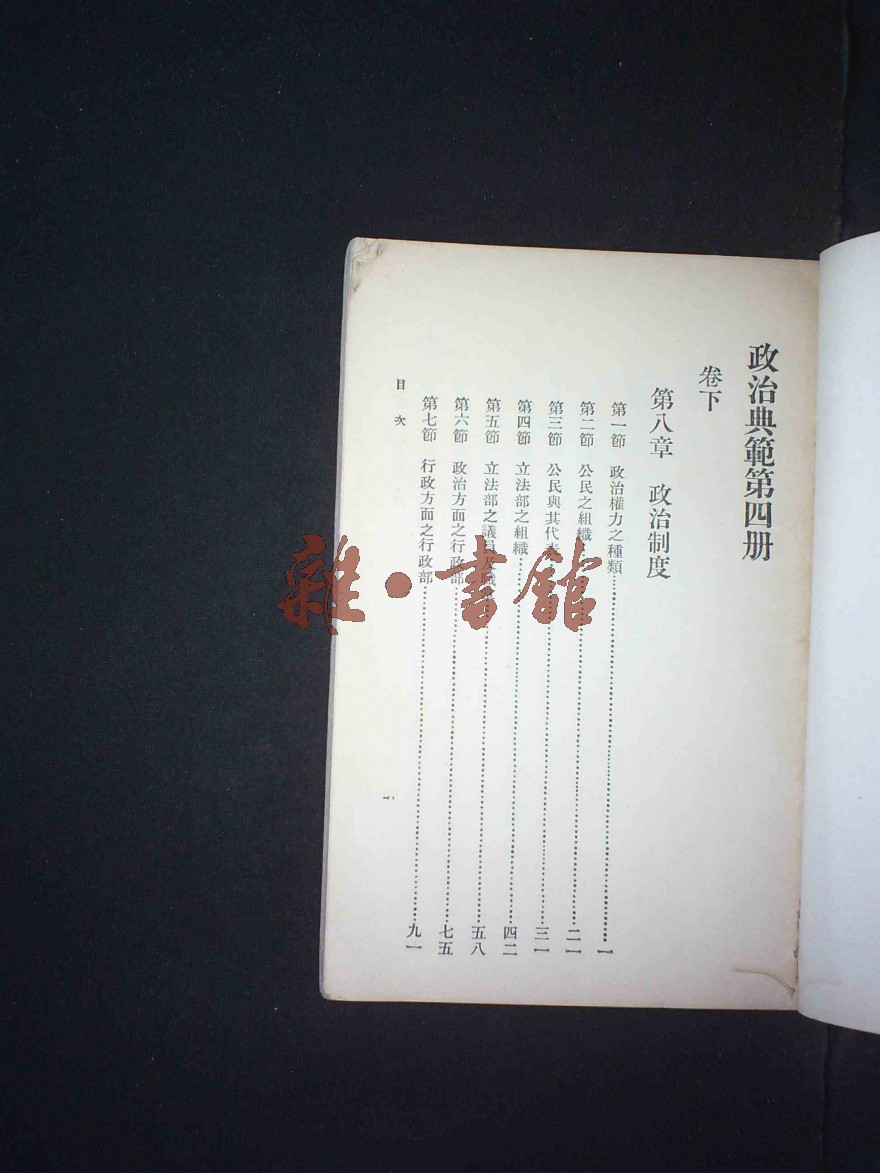 政治典範第四册
卷下
第八章 政治制度
第一節 政治權力之種類…一
第二節 公民之組織…二一
第三節 公民與其代表…三一
第四節 立法部之組織…四二
第五節 立法部之議員及…五八
第六節 政治方面之行政部…七五
第七節 行政方面之行政部…九一
目次
一
雜·書館